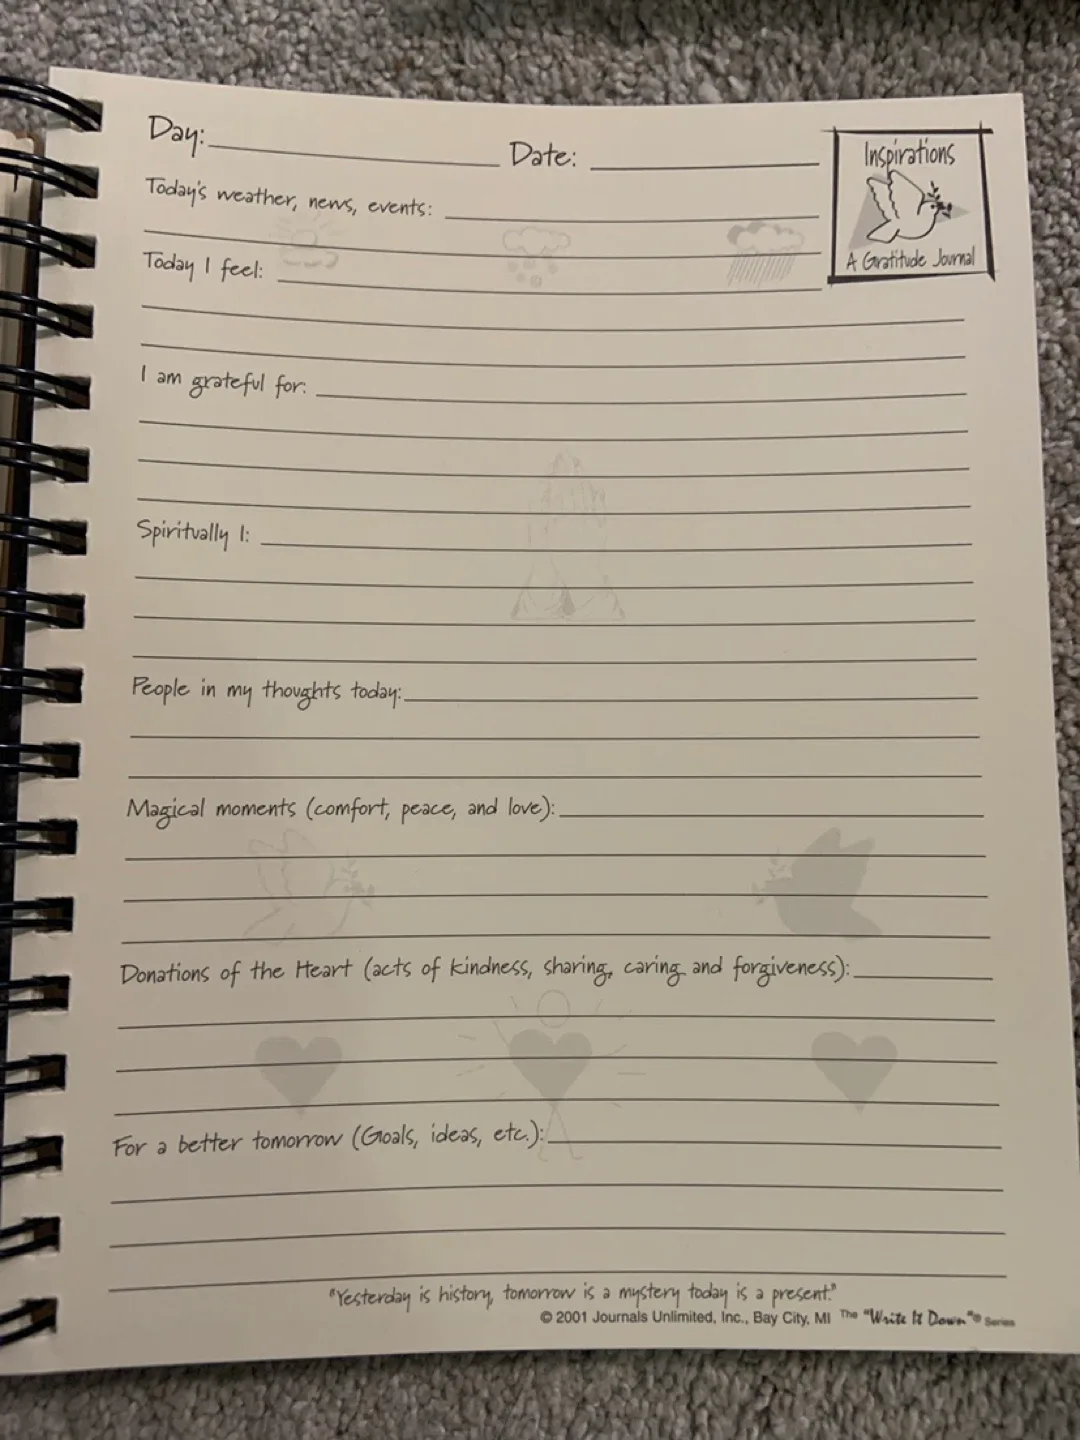 Day: Date:
Inspirations
A Gratitude Journal
Today's weather, news, events:
Today I feel:
I am grateful for:
Spiritually I:
People in my thoughts today:
Magical moments (comfort, peace, and love):
Donations of the Heart (acts of kindness, sharing, caring and forgiveness):
For a better tomorrow (Goals, ideas, etc.):
"Yesterday is history, tomorrow is a mystery today is a present."
© 2001 Journals Unlimited, Inc., Bay City, MI The "Write It Down"® Series